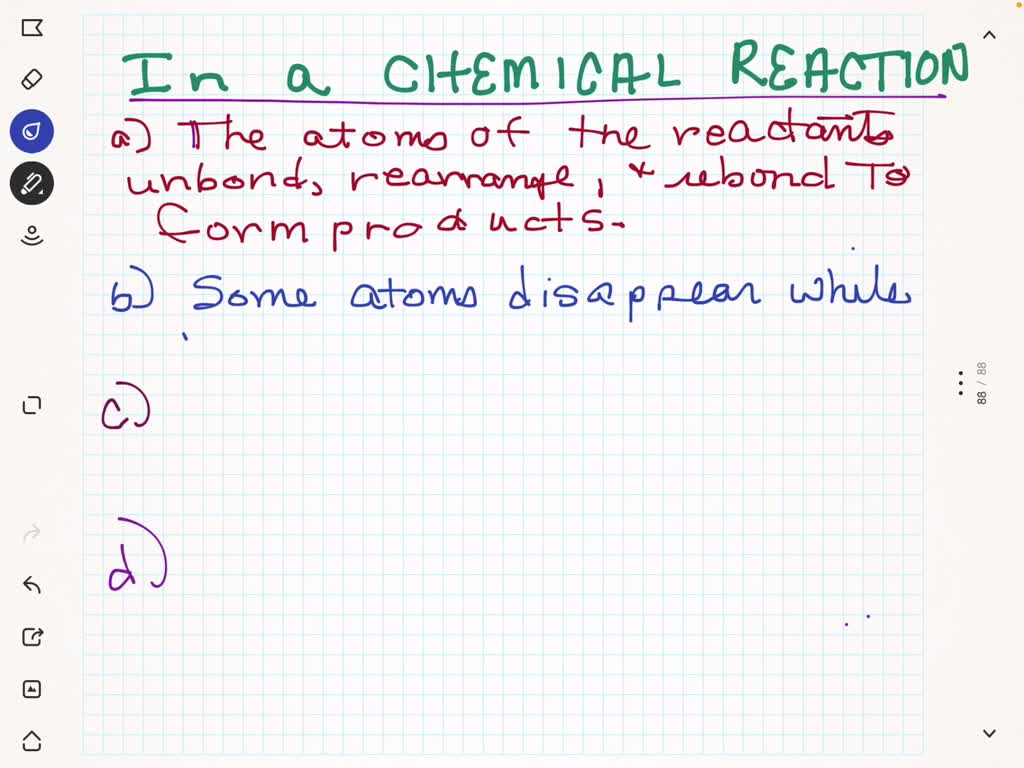 In a CHEMICAL REACTION
a) The atoms of the reactants
unbond, rearrange, + rebond To
form products.
b) Some atoms disappear while
c)
d)
88 / 88